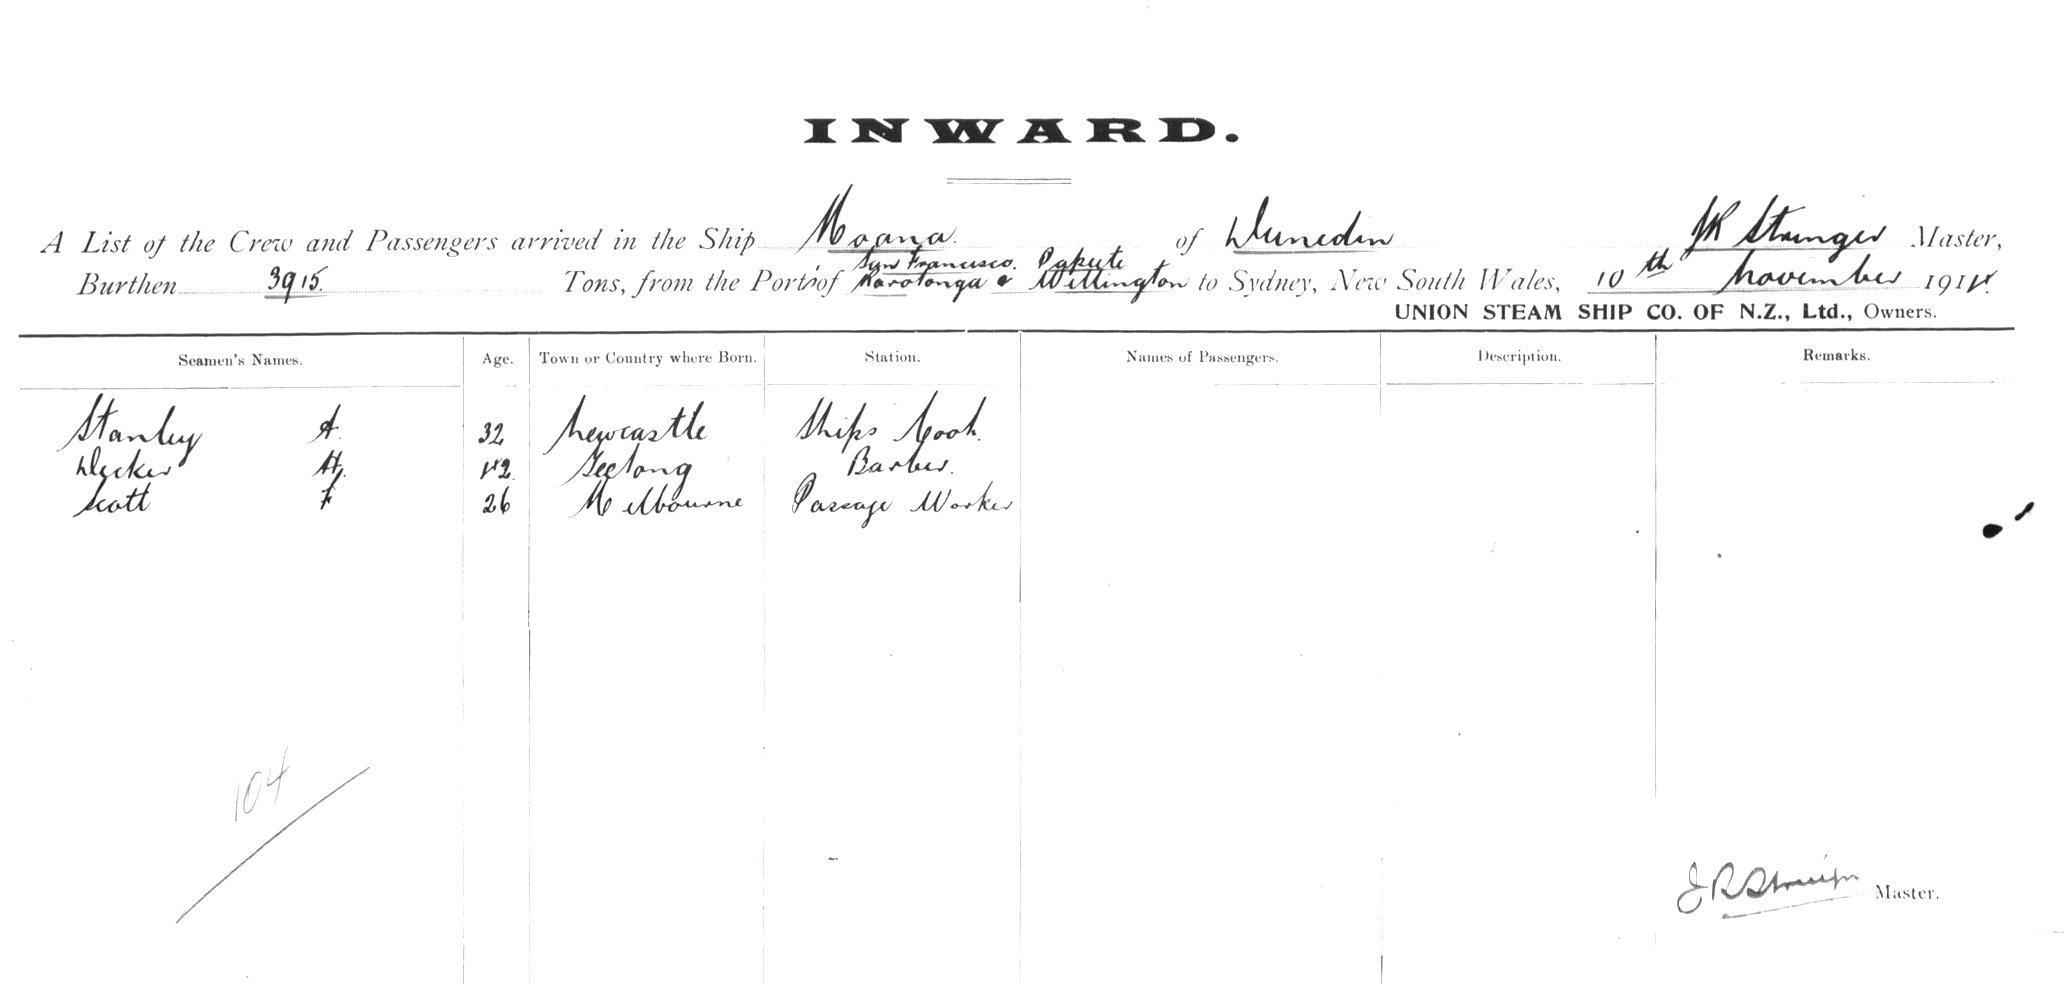 INWARD.
A List of the Crew and Passengers arrived in the Ship Moana. of Dunedin JR Stringer Master,
San Francisco. Papeete
Burthen 3915. Tons, from the Ports of Rarotonga & Wellington to Sydney, New South Wales, 10th November 1914.
UNION STEAM SHIP CO. OF N.Z., Ltd., Owners.
Seamen's Names. Age. Town or Country where Born. Station. Names of Passengers. Description. Remarks.
Stanley A. 32 Newcastle Ships Cook.
Decker H. 42 Geelong Barber.
Scott F 26 Melbourne Passage Worker
104
J R Stringer Master.